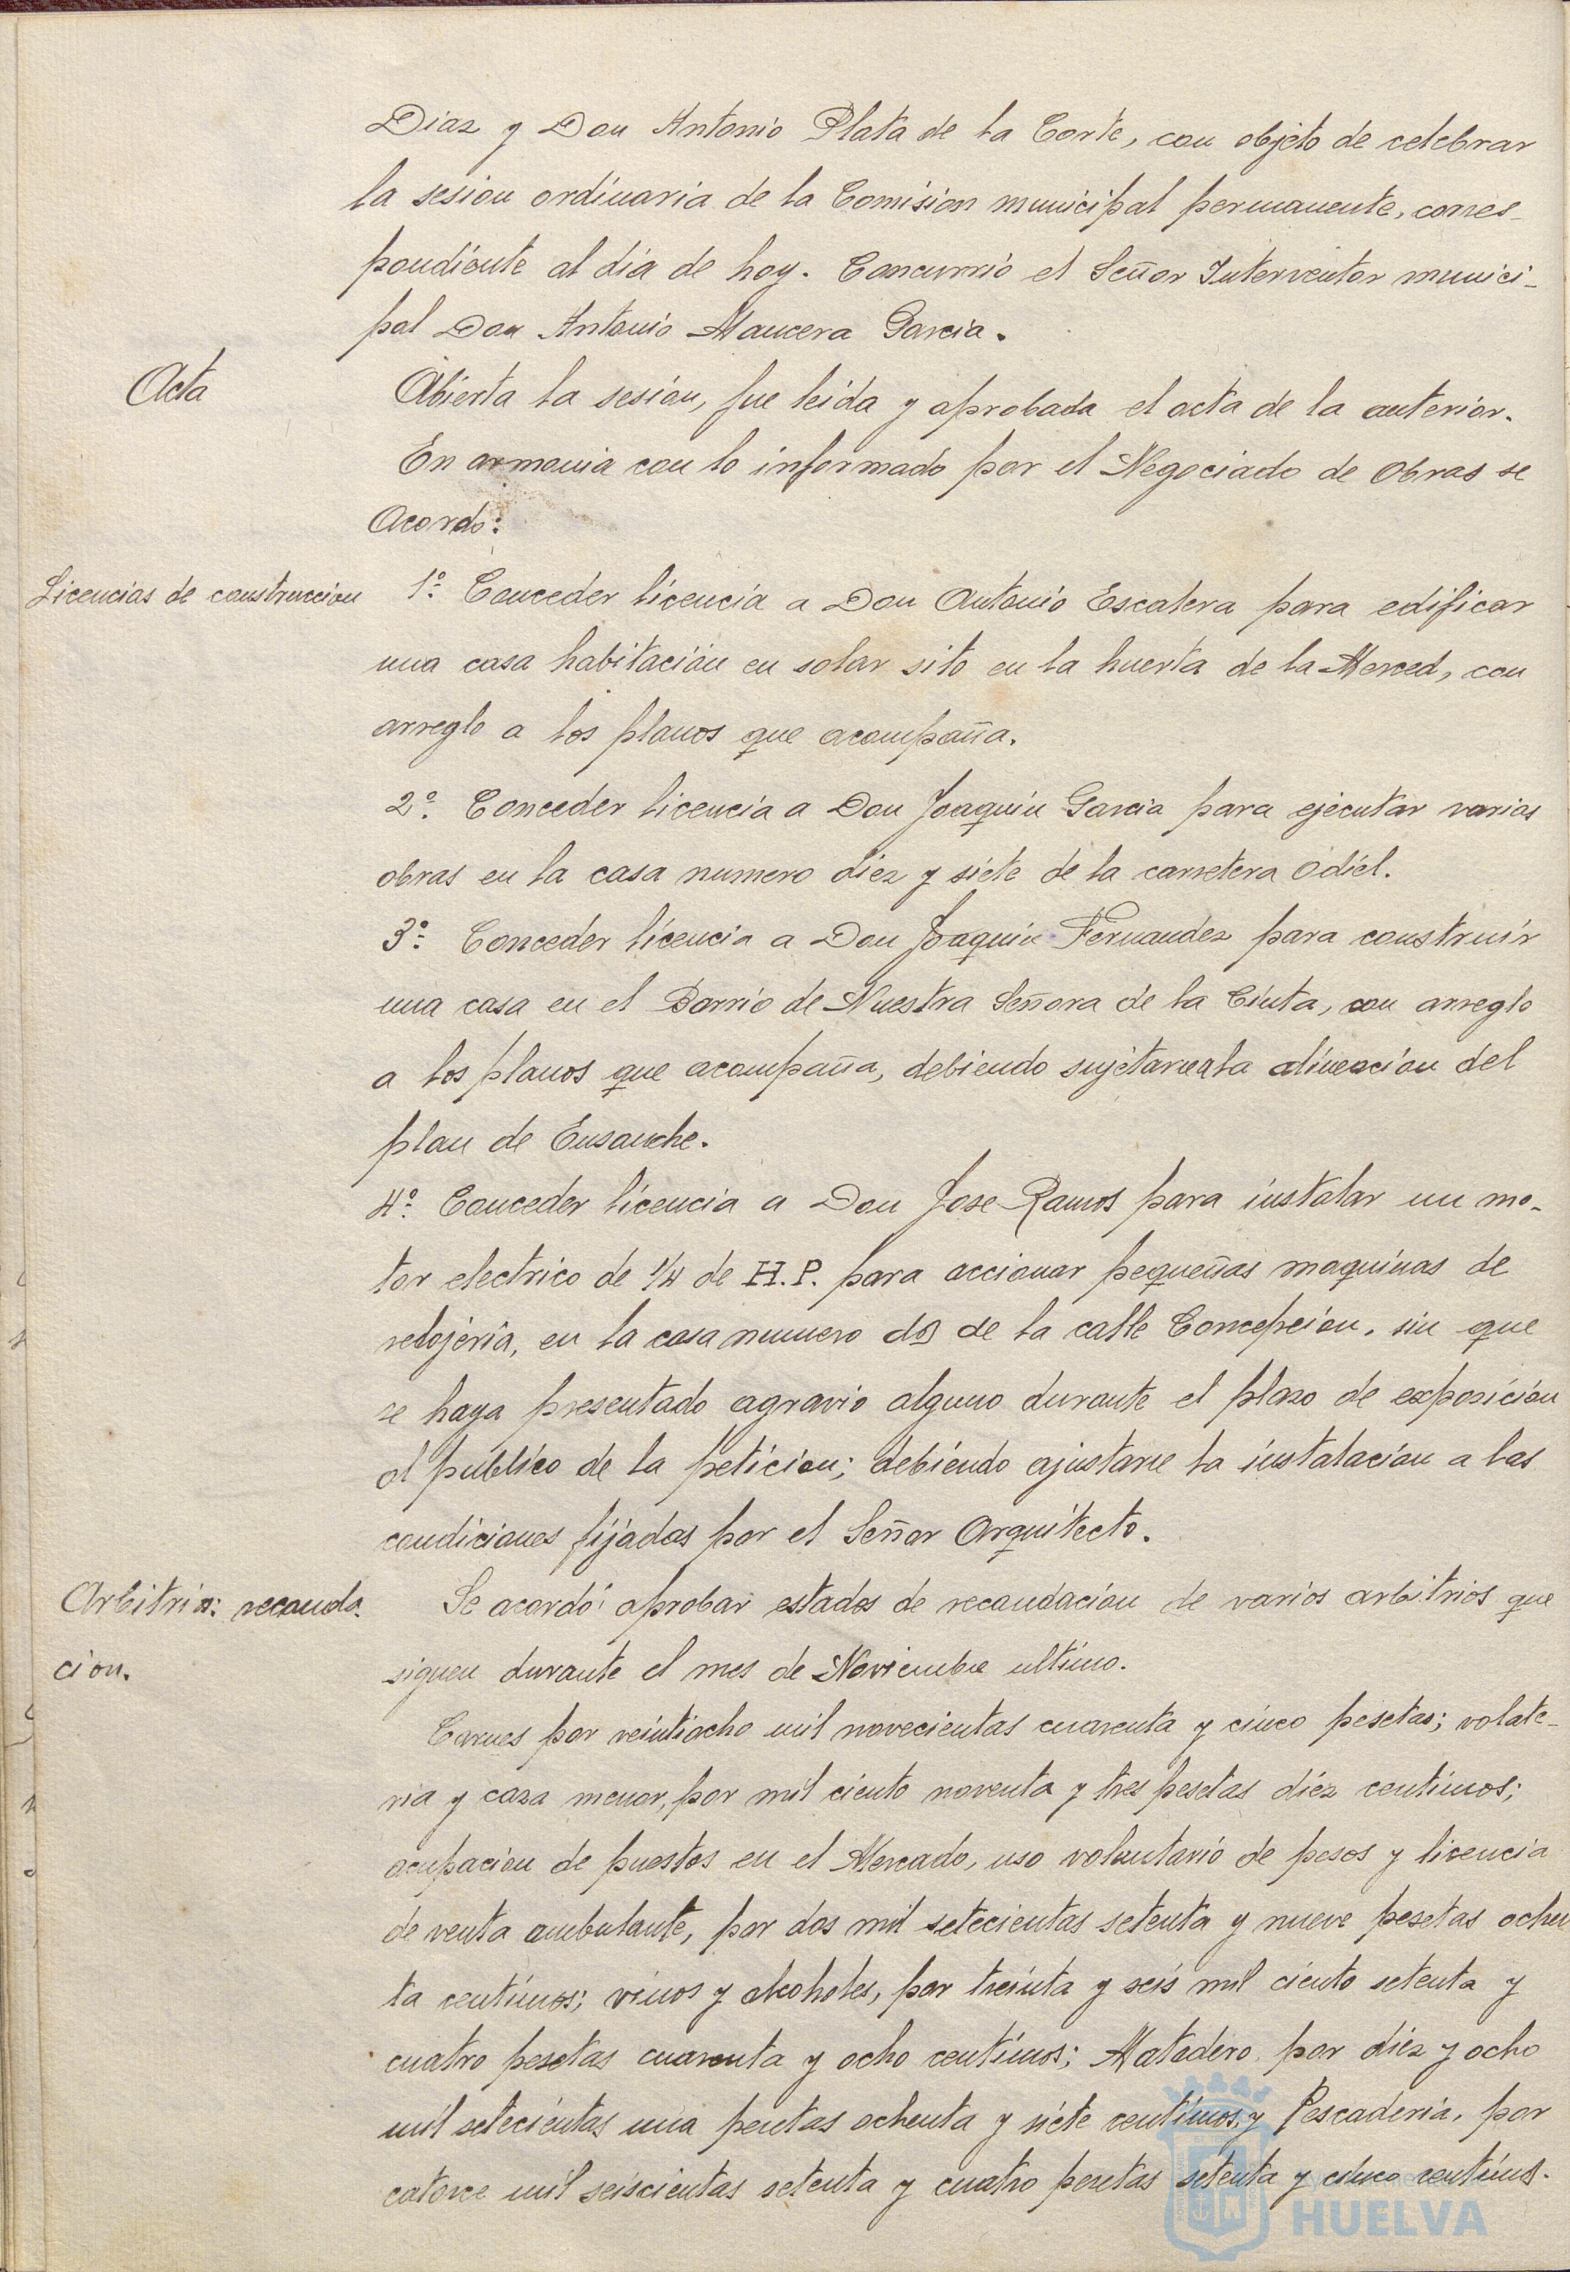 Diaz y Don Antonio Plata de la Corte, con objeto de celebrar
la sesion ordinaria de la Comision municipal permanente, corres-
pondiente al dia de hoy. Concurrió el Señor Interventor munici-
pal Don Antonio Mancera Garcia.
Acta
Abierta la sesión, fue leida y aprobada el acta de la anterior.
En armonia con lo informado por el Negociado de Obras se
Acordó:
Licencias de construccion
1º Conceder licencia a Don Antonio Escalera para edificar
una casa habitación en solar sito en la huerta de la Merced, con
arreglo a los planos que acompaña.
2º. Conceder licencia a Don Joaquin Garcia para ejecutar varias
obras en la casa numero diez y siete de la carretera Odiel.
3º. Conceder licencia a Don Joaquin Fernandez para construir
una casa en el Barrio de Nuestra Señora de la Cinta, con arreglo
a los planos que acompaña, debiendo sujetarse a la alineacion del
plan de Ensanche.
4º. Conceder licencia a Don Jose Ramos para instalar un mo-
tor electrico de 1/4 de H.P. para accionar pequeñas maquinas de
relojeria, en la casa numero dos de la calle Concepción, sin que
se haya presentado agravio alguno durante el plazo de exposición
al publico de la peticion; debiendo ajustarse la instalación a las
condiciones fijadas por el Señor Arquitecto.
Arbitrios: recauda-
cion.
Se acordó aprobar estados de recaudación de varios arbitrios que
siguen durante el mes de Noviembre ultimo.
Carnes por veintiocho mil novecientas cuarenta y cinco pesetas; volate-
ria y caza menor, por mil ciento noventa y tres pesetas diez centimos;
ocupacion de puestos en el Mercado, uso voluntario de pesos y licencia
de venta ambulante, por dos mil setecientas setenta y nueve pesetas ochen
ta centimos; vinos y alcoholes, por treinta y seis mil ciento setenta y
cuatro pesetas cuarenta y ocho centimos; Matadero, por diez y ocho
mil setecientas una pesetas ochenta y siete centimos, y Pescaderia, por
catorce mil seiscientas setenta y cuatro pesetas setenta y cinco centimos.
HUELVA